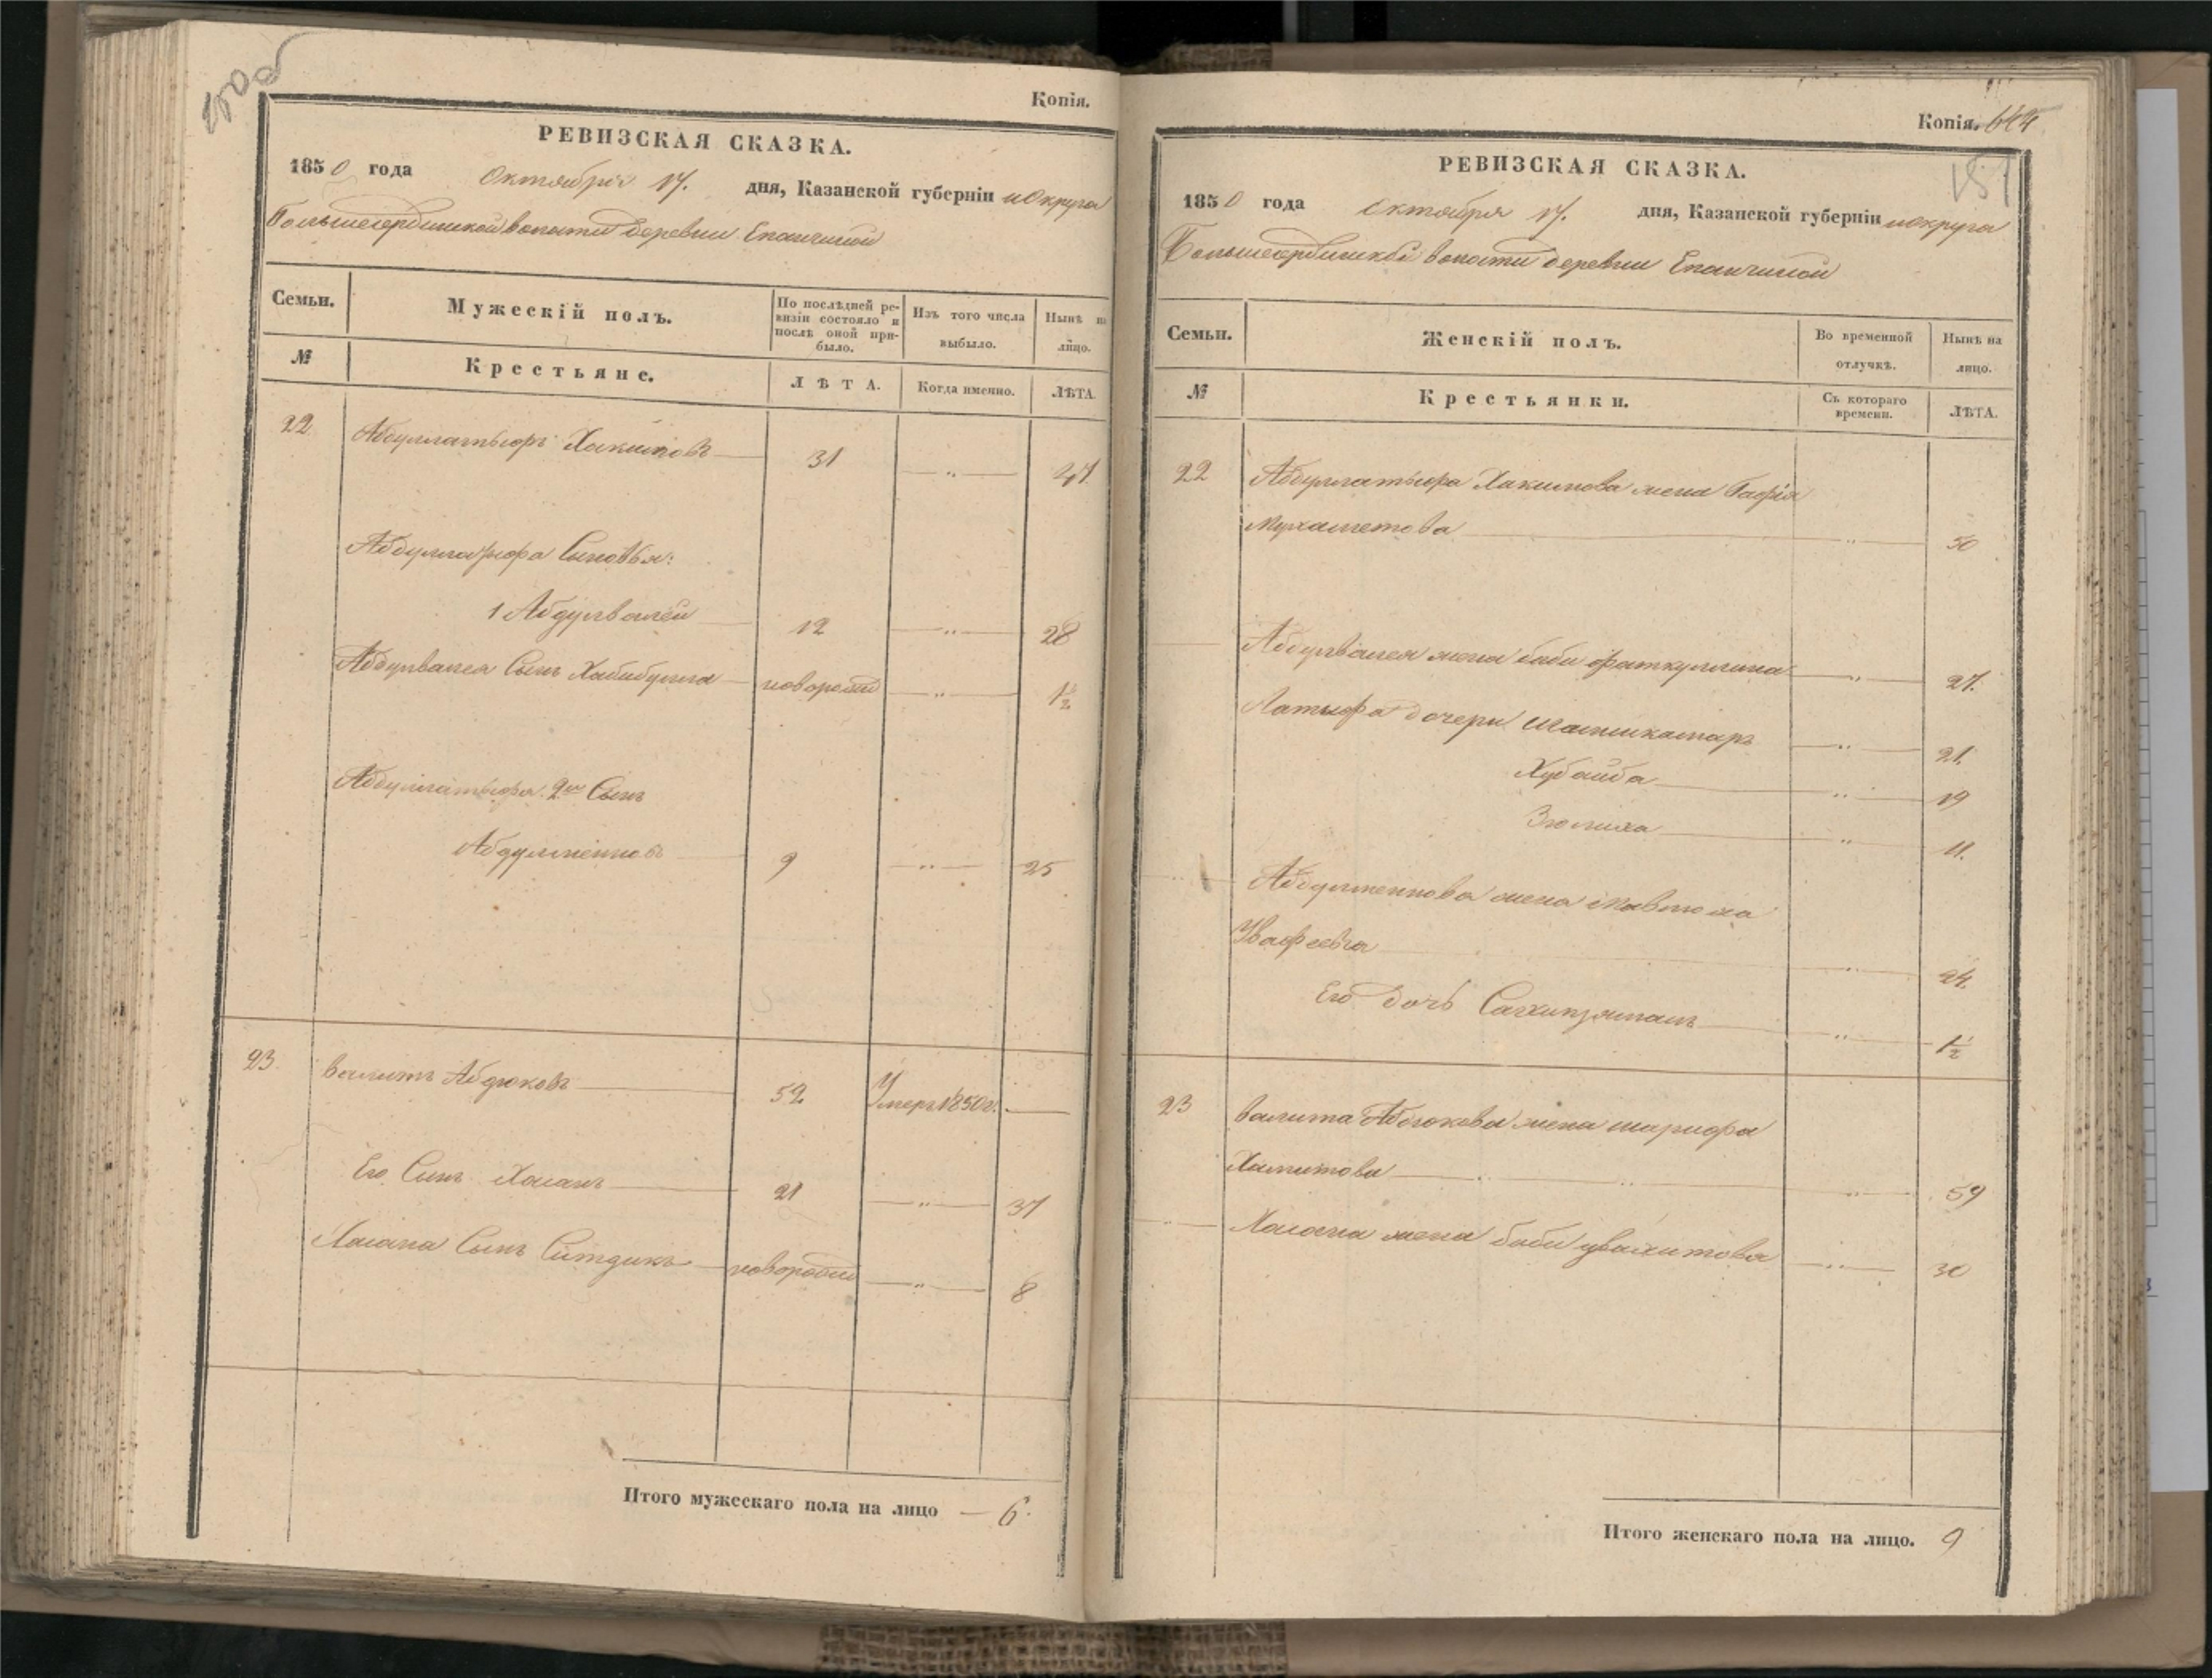 Копія.
РЕВИЗСКАЯ СКАЗКА.
1850 года Октября 17. дня, Казанской губерніи и Округа
Большесердинской волости деревни Епанчиной
Семьи. Мужескій полъ. По послѣдней ревизіи состояло и послѣ оной прибыло. Изъ того числа выбыло. Нынѣ на лицо.
№ Крестьяне. ЛѢТА. Когда именно. ЛѢТА.
22 Абдуллатыфъ Хакимовъ 31 „ 47
Абдуллатыфа Сыновья:
1 Абдулвалей 12 „ 28
Абдулвалея Сынъ Хабибулла новорожд „ 1½
Абдуллатыфа 2й Сынъ
Абдулменновъ 9 „ 25
23 Валитъ Абдюковъ 52 Умеръ 1850 г.
Его Сынъ Хасанъ 21 „ 37
Хасана Сынъ Ситдикъ новорожд „ 8
Итого мужескаго пола на лицо — 6.
Копія. 644
151
РЕВИЗСКАЯ СКАЗКА.
1850 года Октября 17. дня, Казанской губерніи и округа
Большесердинской волости деревни Епанчиной
Семьи. Женскій полъ. Во временной отлучкѣ. Нынѣ на лицо.
№ Крестьянки. Съ котораго времени. ЛѢТА.
22 Абдуллатыфа Хакимова жена Гафія
Мухаметова „ 50
Абдулвалея жена биби Фаткуллина „ 27.
Латыфа дочери Шамсикамаръ „ 21.
Хубайба „ 19
Зюлиха „ 11.
Абдулменнова жена Мавлюха
„ 24.
Его дочь „ 1½
23 Валита Абдюкова жена шарифа
Хамитова „ 59
Хасана жена биби увалитова „ 30
Итого женскаго пола на лицо. 9